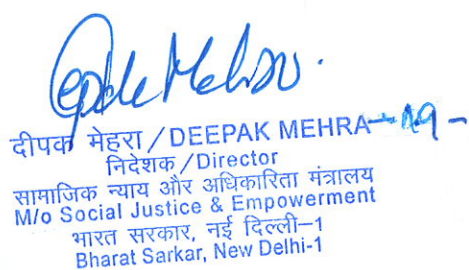 दीपक मेहरा / DEEPAK MEHRA
निदेशक / Director
सामाजिक न्याय और अधिकारिता मंत्रालय
M/o Social Justice & Empowerment
भारत सरकार, नई दिल्ली–1
Bharat Sarkar, New Delhi-1